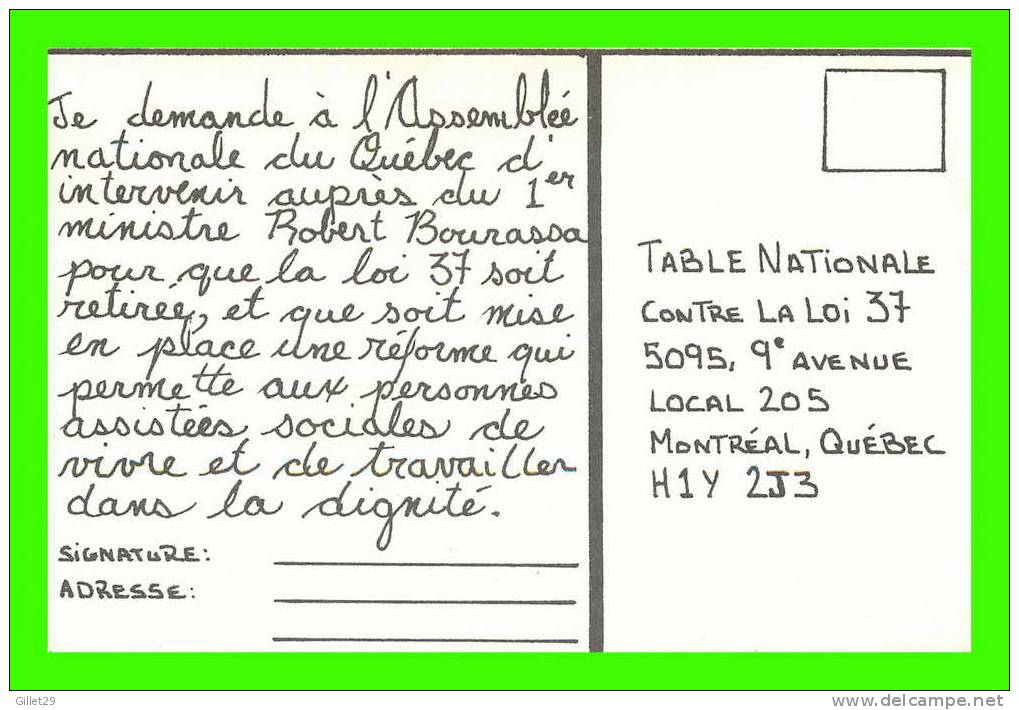 Je demande à l'Assemblée
nationale du Québec d'
intervenir auprès du 1er
ministre Robert Bourassa
pour que la loi 37 soit
retirée, et que soit mise
en place une réforme qui
permette aux personnes
assistées sociales de
vivre et de travailler
dans la dignité.
SIGNATURE:
ADRESSE:
TABLE NATIONALE
CONTRE LA LOI 37
5095, 9e AVENUE
LOCAL 205
MONTRÉAL, QUÉBEC
H1Y 2J3
Gillet29
www.delcampe.net